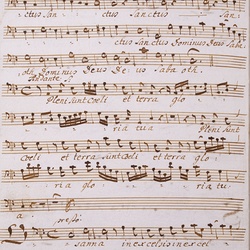 ctus sanctus sanctus san
ctus sanctus Dominus Deus Saba
oth Dominus Deus Deus Sabaoth.
Andante
Pleni sunt coeli et terra glo
ria tua Pleni sunt
coeli et terra sunt coeli et terra
ria glo ria tu
a. presto
sanna in excelsis in excel